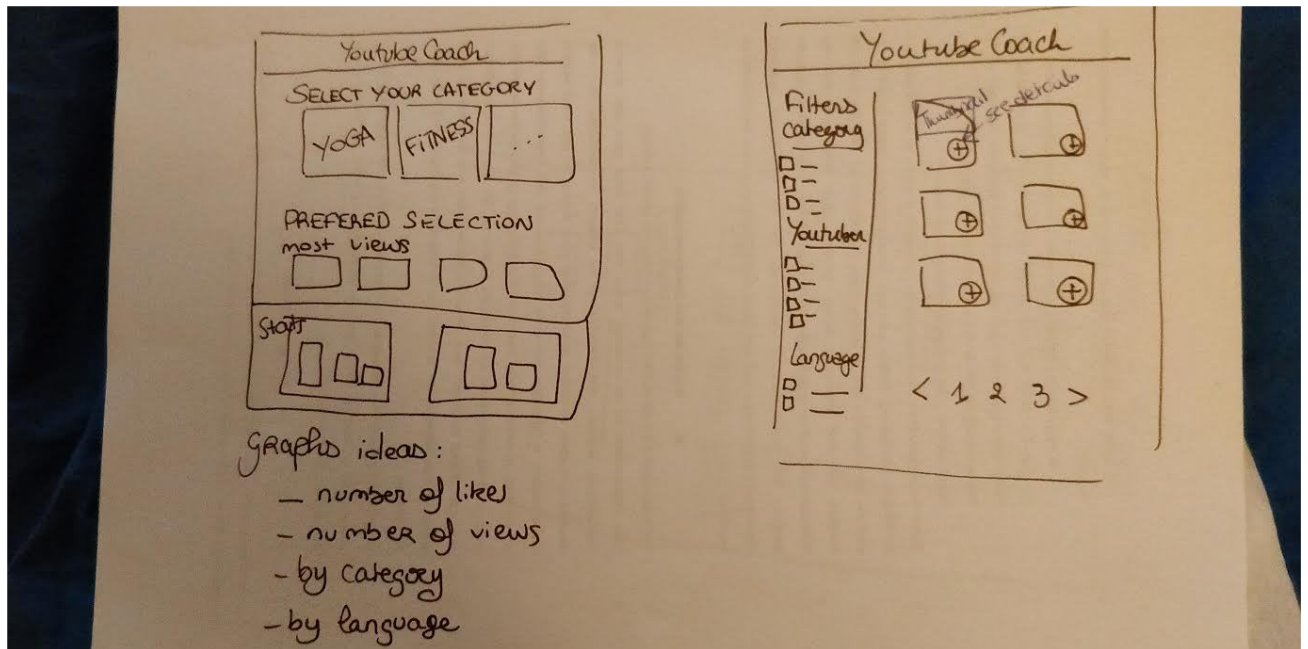 Youtube Coach
SELECT YOUR CATEGORY
YOGA
FITNESS
...
PREFERED SELECTION
most views
Stats
GRaphs ideas:
- number of likes
- number of views
- by category
- by language
Youtube Coach
Filters
Category
Youtuber
Language
Thumbnail
see details
< 1 2 3 >